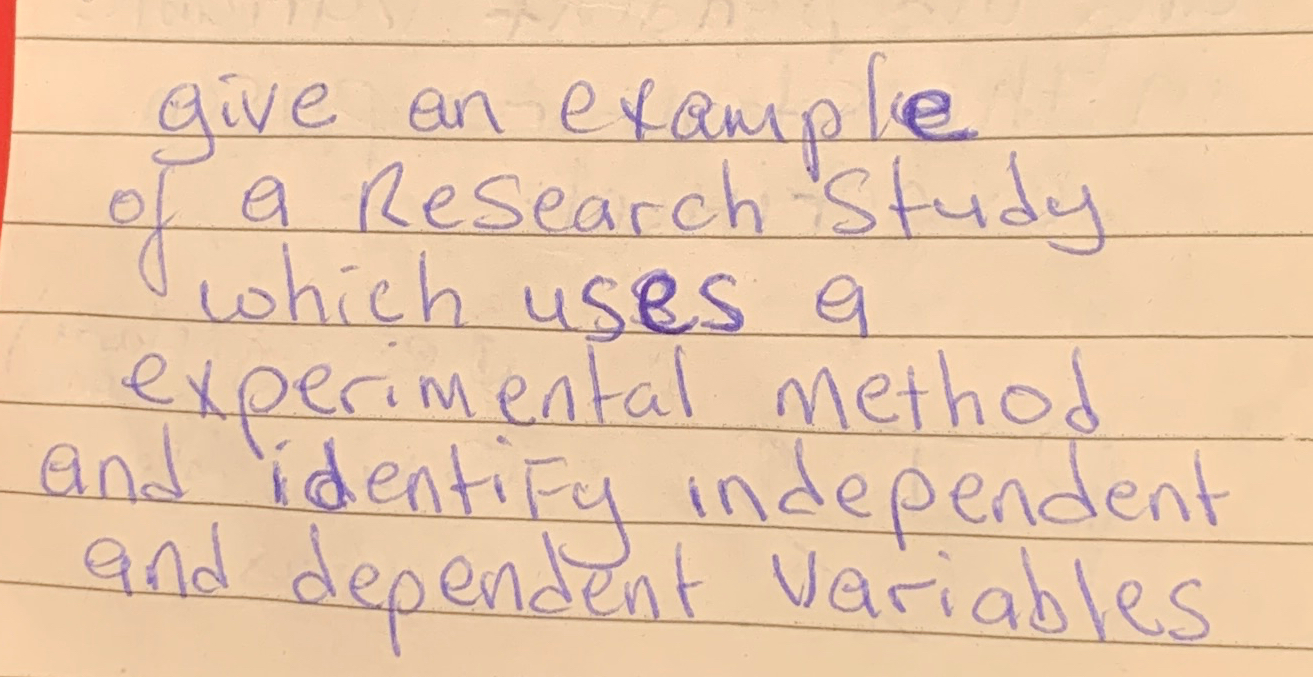 give an example
of a Research Study
which uses a
experimental method
and identify independent
and dependent variables